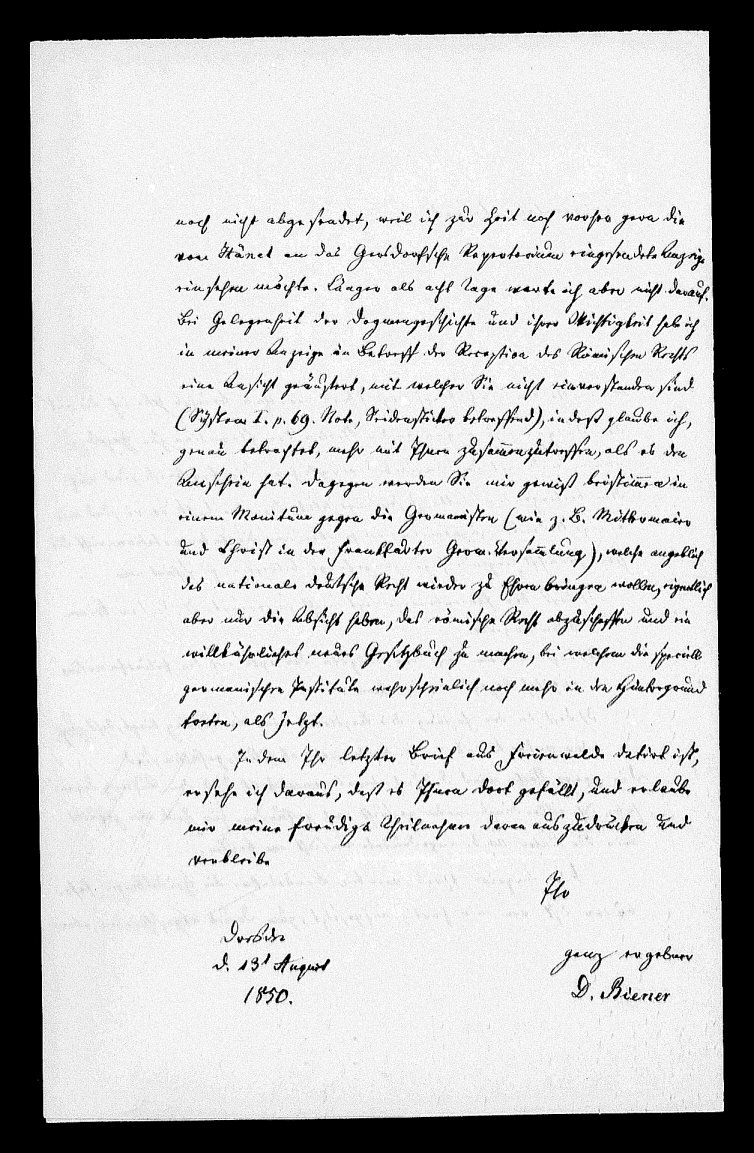 noch nicht abgesendet, weil ich zur Zeit noch vorher gern die
von Hänel an das Gersdorfsche Repertorium eingesendete Anzeige
einsehen möchte. Länger als acht Tage warte ich aber nicht darauf.
Bei Gelegenheit der Dogmengeschichte und ihrer Wichtigkeit hab ich
in meiner Anzeige in Betreff der Reception des Römischen Rechts
eine Ansicht geäußert, mit welcher Sie nicht einverstanden sind
(System I. p. 69. Note, Seidensticker betreffend), indeß glaube ich,
genau betrachtet, mehr mit Ihnen zusammenzutreffen, als es den
Anschein hat. Dagegen werden Sie mir gewiß beistimmen in
einem Monitum gegen die Germanisten (wie z. B. Mittermaier
und Christ in der Frankfurter Germ. Versammlung), welche angeblich
das nationale deutsche Recht wieder zu Ehren bringen wollen, eigentlich
aber nur die Absicht haben, das römische Recht abzuschaffen und ein
willkührliches neues Gesetzbuch zu machen, bei welchem die speciell
germanischen Institute wahrscheinlich noch mehr in den Hintergrund
treten, als jetzt.
Indem Ihr letzter Brief aus Freienwalde datirt ist,
ersehe ich daraus, daß es Ihnen dort gefällt, und erlaube
mir meine freudige Theilnahme daran auszudrücken und
verbleibe
Ihr
Dresden
d. 13t August
1850.
ganz ergebner
D. Biener